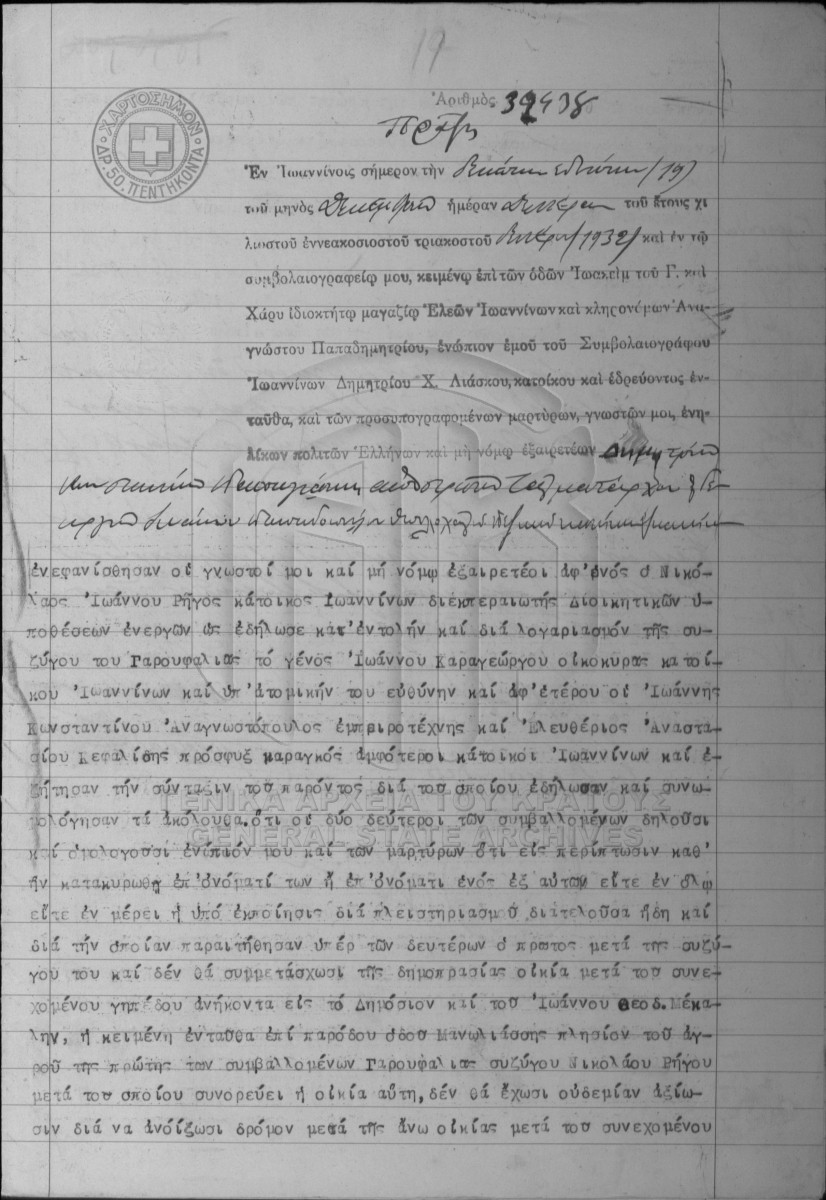 19
Ἀριθμὸς 39438
Πρᾶξις
ΧΑΡΤΟΣΗΜΟΝ
ΔΡ. 50. ΠΕΝΤΗΚΟΝΤΑ
Ἐν Ἰωαννίνοις σήμερον τὴν δεκάτην ἐνάτην (19)
τοῦ μηνὸς Δεκεμβρίου ἡμέραν Δευτέραν τοῦ ἔτους χι
λιοστοῦ ἐννεακοσιοστοῦ τριακοστοῦ δευτέρου (1932) καὶ ἐν τῷ
συμβολαιογραφείῳ μου, κειμένῳ ἐπὶ τῶν ὁδῶν Ἰωακεὶμ τοῦ Γ. καὶ
Χάρυ ἰδιοκτήτῳ μαγαζίῳ Ἐλεῶν Ἰωαννίνων καὶ κληρονόμων Ἀνα-
γνώστου Παπαδημητρίου, ἐνώπιον ἐμοῦ τοῦ Συμβολαιογράφου
Ἰωαννίνων Δημητρίου Χ. Λιάσκου, κατοίκου καὶ ἑδρεύοντος ἐν-
ταῦθα, καὶ τῶν προσυπογραφομένων μαρτύρων, γνωστῶν μοι, ἐνη-
λίκων πολιτῶν Ἑλλήνων καὶ μὴ νόμῳ ἐξαιρετέων
ἐνεφανίσθησαν οἱ γνωστοί μοι καί μή νόμῳ ἐξαιρετέοι ἀφ'ἑνός ὁ Νικό-
λαος Ἰωάννου Ρῆγος κάτοικος Ἰωαννίνων διεκπεραιωτής Διοικητικῶν ὑ-
ποθέσεων ἐνεργῶν ὡς ἐδήλωσε κατ'ἐντολήν καί διά λογαριασμόν τῆς συ-
ζύγου του Γαρουφαλιᾶς τό γένος Ἰωάννου Καραγεώργου οἰκοκυρᾶς κατοί-
κου Ἰωαννίνων καί ὑπ'ἀτομικήν του εὐθύνην καί ἀφ'ἑτέρου οἱ Ἰωάννης
Κωνσταντίνου Ἀναγνωστόπουλος ἐμπειροτέχνης καί Ἐλευθέριος Ἀναστα-
σίου Κεφαλίδης πρόσφυξ καραγκός ἀμφότεροι κάτοικοι Ἰωαννίνων καί ἐ-
ζήτησαν τήν σύνταξιν τοῦ παρόντος διά τοῦ ὁποίου ἐδήλωσαν καί συνω-
μολόγησαν τά ἀκόλουθα.ὅτι οἱ δύο δεύτεροι τῶν συμβαλλομένων δηλοῦσι
καί ὁμολογοῦσι ἐνώπιόν μου καί τῶν μαρτύρων ὅτι εἰς περίπτωσιν καθ'
ἥν κατακυρωθῇ ἐπ'ὀνόματί των ἤ ἐπ'ὀνόματι ἑνός ἐξ αὐτῶν εἴτε ἐν ὅλῳ
εἴτε ἐν μέρει ἡ ὑπό ἐκποίησις διά πλειστηριασμοῦ διατελοῦσα ἤδη καί
διά τήν ὁποίαν παραιτήθησαν ὑπέρ τῶν δευτέρων ὁ πρῶτος μετά τῆς συζύ-
γου του καί δέν θά συμμετάσχωσι τῆς δημοπρασίας οἰκία μετά τοῦ συνε-
χομένου γηπέδου ἀνήκοντα εἰς τό Δημόσιον καί τοῦ Ἰωάννου Θεοδ.Μέκα-
λην, ἡ κειμένη ἐνταῦθα ἐπί παρόδου ὁδοῦ Μανωλιάσσης πλησίον τοῦ ἀγ-
ροῦ τῆς πρώτης τῶν συμβαλλομένων Γαρουφαλιᾶς συζύγου Νικολάου Ρήγου
μετά τοῦ ὁποίου συνορεύει ἡ οἰκία αὕτη,δέν θά ἔχωσι οὐδεμίαν ἀξίω-
σιν διά να ἀνοίξωσι δρόμον μετά τῆς ἄνω οἰκίας μετά τοῦ συνεχομένου
ΓΕΝΙΚΑ ΑΡΧΕΙΑ ΤΟΥ ΚΡΑΤΟΥΣ
GENERAL STATE ARCHIVES